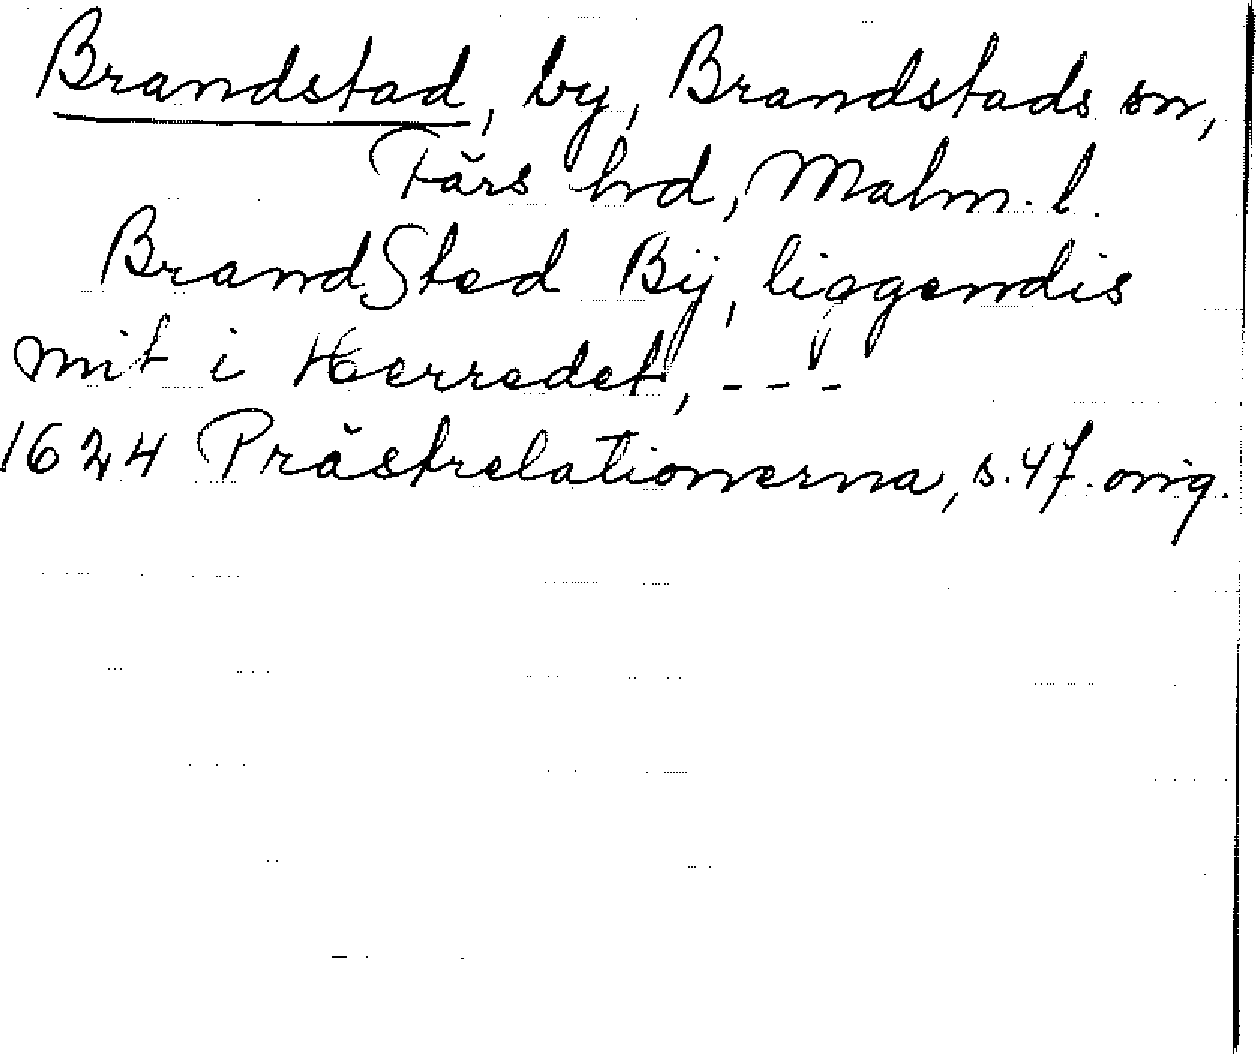 Brandstad, by, Brandstads sn,
Färs hd, Malm. l.
BrandSted Bÿ, liggendis
mit i Herredet, - - -
1624 Prästrelationerna, s. 47. orig.